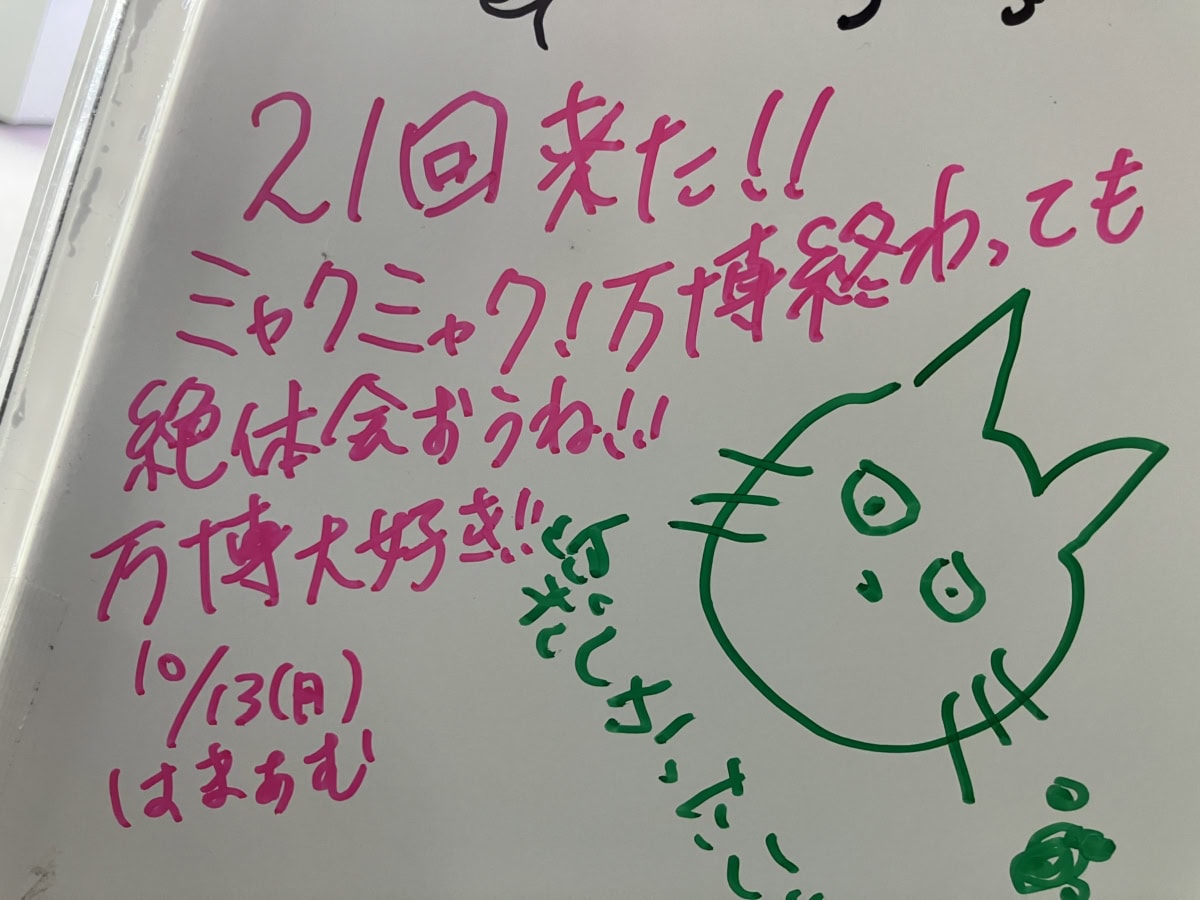 21回来た!!
ミャクミャク!万博終わっても
絶体会おうね!!
万博大好き!!
10/13(月)
はまあむ
楽しかったで